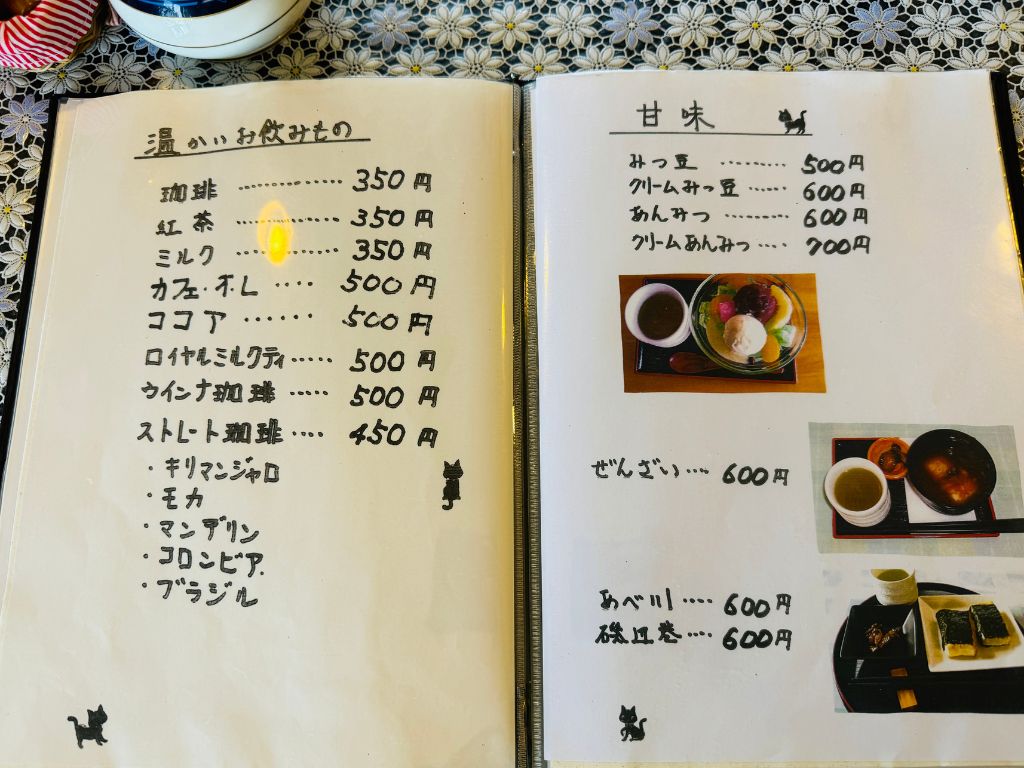 温かいお飲みもの
珈琲 ………… 350円
紅茶 ………… 350円
ミルク ………… 350円
カフェ・オ・レ ‥‥ 500円
ココア ‥‥‥ 500円
ロイヤルミルクティ‥‥‥ 500円
ウインナ珈琲 ‥‥‥ 500円
ストレート珈琲‥‥ 450円
・キリマンジャロ
・モカ
・マンデリン
・コロンビア
・ブラジル
甘味
みつ豆 ………… 500円
クリームみつ豆 ‥‥‥ 600円
あんみつ ………… 600円
クリームあんみつ ‥‥ 700円
ぜんざい‥‥ 600円
あべ川‥‥ 600円
磯辺巻‥‥ 600円